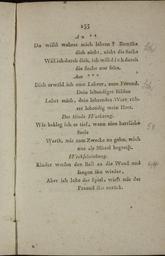 255
An **
Du willst wahres mich lehren? Bemühe
dich nicht, nicht die Sache
Will ich durch dich, ich will dich durch
die Sache nur sehn.
An ***
Dich erwähl ich zum Lehrer, zum Freund.
Dein lebendiges Bilden
Lehrt mich, dein lehrendes Wort rüh-
ret lebendig mein Herz.
Das blinde Werkzeug.
Wie beklag ich es tief, wenn eine herrliche
Seele
Werth, mit zum Zwecke zu gehn, mich
nur als Mittel begreift.
Wechselwirkung.
Kinder werfen den Ball an die Wand und
fangen ihn wieder,
Aber ich lobe das Spiel, wirft mir der
Freund ihn zurück.